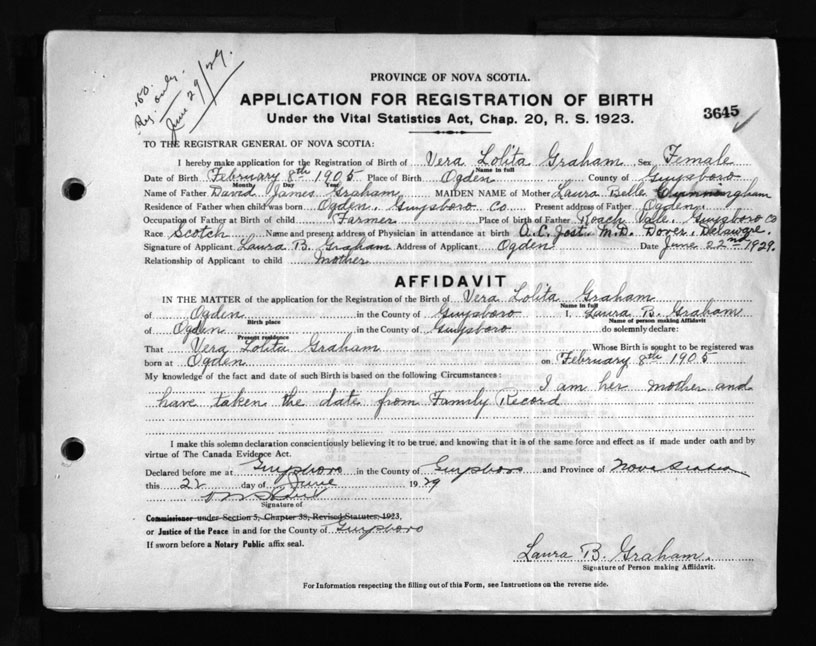 .50.
Reg. only.
June 29/29.
PROVINCE OF NOVA SCOTIA.
APPLICATION FOR REGISTRATION OF BIRTH
Under the Vital Statistics Act, Chap. 20, R. S. 1923.
3645
TO THE REGISTRAR GENERAL OF NOVA SCOTIA:
I hereby make application for the Registration of Birth of Vera Lolita Graham Sex Female
Name in full
Date of Birth February 8th 1905 Place of Birth Ogden County of Guysboro
Month Day Year
Name of Father David James Graham MAIDEN NAME of Mother Laura Belle Cunningham
Residence of Father when child was born Ogden, Guysboro Co Present address of Father Ogden
Occupation of Father at Birth of child Farmer Place of birth of Father Roach Vale, Guysboro Co
Race Scotch Name and present address of Physician in attendance at birth A. C. Jost. M. D. Dover, Delaware.
Signature of Applicant Laura B. Graham Address of Applicant Ogden Date June 22nd 1929.
Relationship of Applicant to child Mother
AFFIDAVIT
IN THE MATTER of the application for the Registration of the Birth of Vera Lolita Graham
Name in full
of Ogden in the County of Guysboro I, Laura B. Graham
Birth place Name of person making Affidavit
of Ogden in the County of Guysboro do solemnly declare:
Present residence
That Vera Lolita Graham Whose Birth is sought to be registered was
born at Ogden on February 8th 1905
My knowledge of the fact and date of such Birth is based on the following Circumstances:
I am her mother and
have taken the date from Family Record
I make this solemn declaration conscientiously believing it to be true, and knowing that it is of the same force and effect as if made under oath and by
virtue of The Canada Evidence Act.
Declared before me at Guysboro in the County of Guysboro and Province of Nova Scotia
this 22 day of June 1929
Signature of
Commissioner under Section 3, Chapter 38, Revised Statutes, 1923,
or Justice of the Peace in and for the County of Guysboro
If sworn before a Notary Public affix seal.
Laura B. Graham.
Signature of Person making Affidavit.
For Information respecting the filling out of this Form, see Instructions on the reverse side.